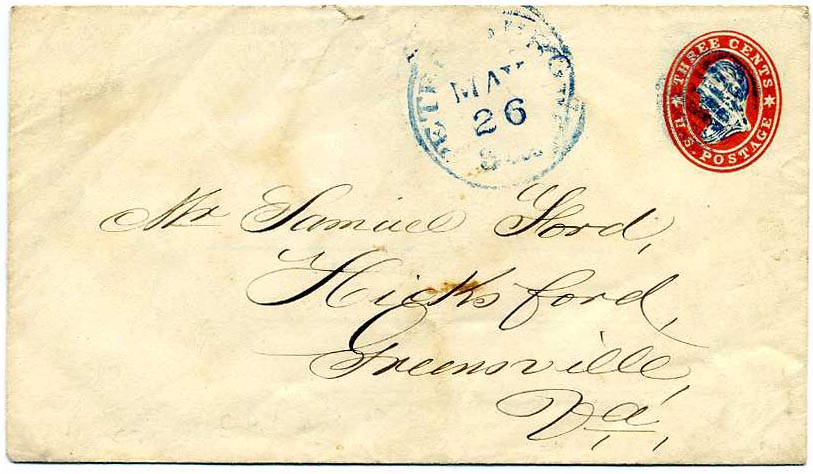 MAY
26
THREE CENTS
U.S. POSTAGE
Mr Samuel Ford,
Hicksford,
Greensville,
Va,